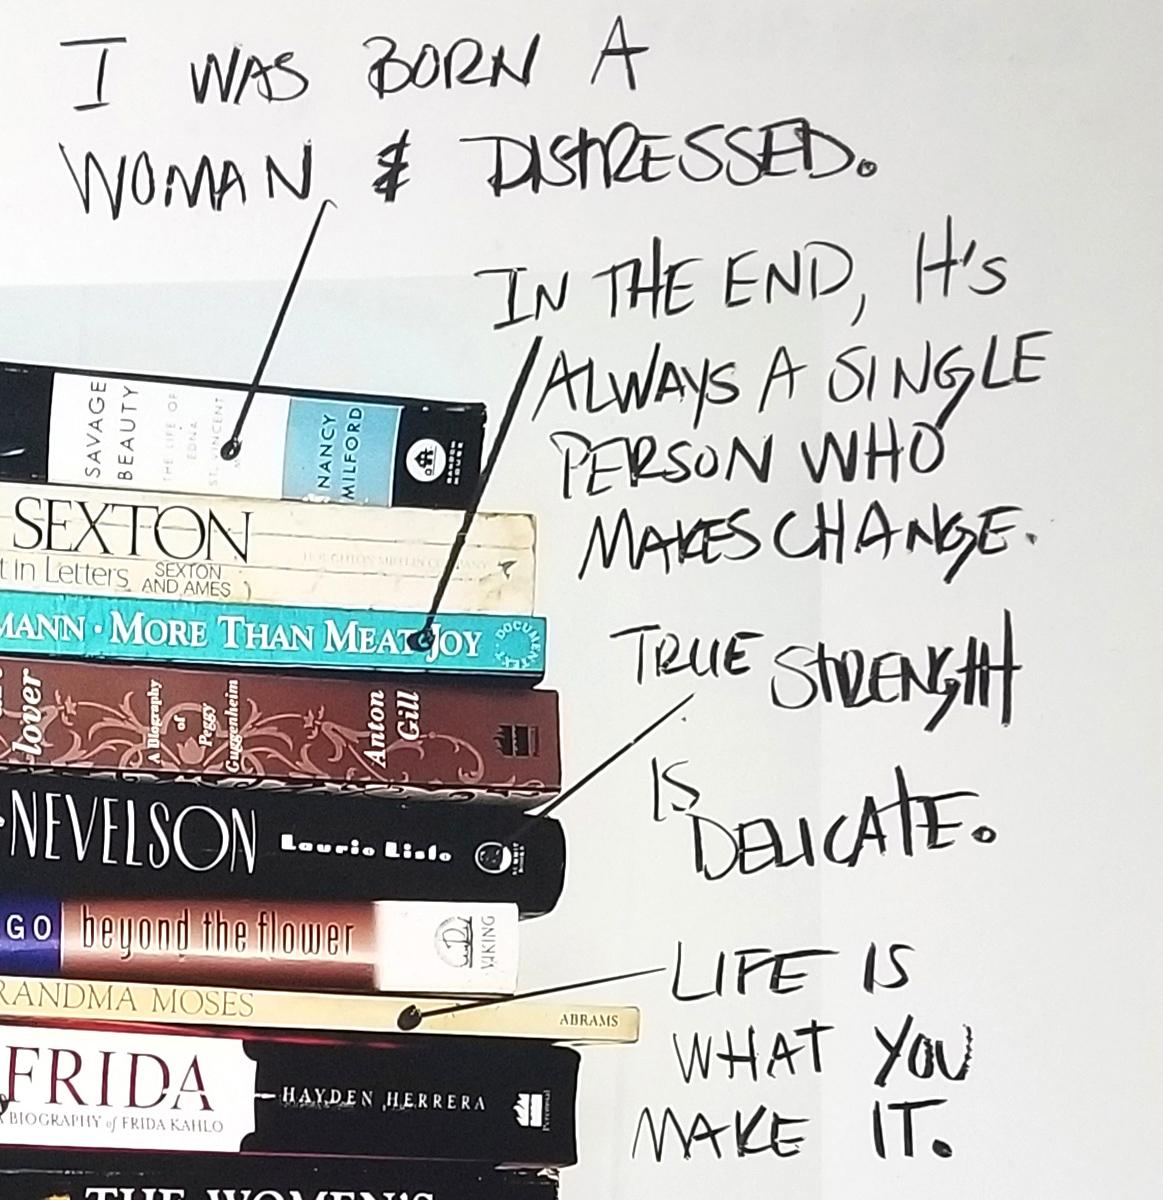 I WAS BORN A
WOMAN & DISTRESSED.
IN THE END, It's
ALWAYS A SINGLE
PERSON WHO
MAKES CHANGE.
TRUE STRENGtH
IS
DELICAtE.
LIFE IS
WHAT YOU
MAKE IT.
SAVAGE
BEAUTY
THE LIFE OF
EDNA
ST. VINCENT
NANCY
MILFORD
RANDOM
HOUSE
SEXTON
t in Letters
SEXTON
AND AMES
HOUGHTON MIFFLIN COMPANY
MANN · MORE THAN MEAT JOY
DOCUMENTEXT
lover
A Biography
of
Peggy
Guggenheim
Anton
Gill
NEVELSON
Laurie Lisle
GO
beyond the flower
VIKING
RANDMA MOSES
ABRAMS
FRIDA
A BIOGRAPHY of FRIDA KAHLO
HAYDEN HERRERA
Perennial
THE WOMEN'S